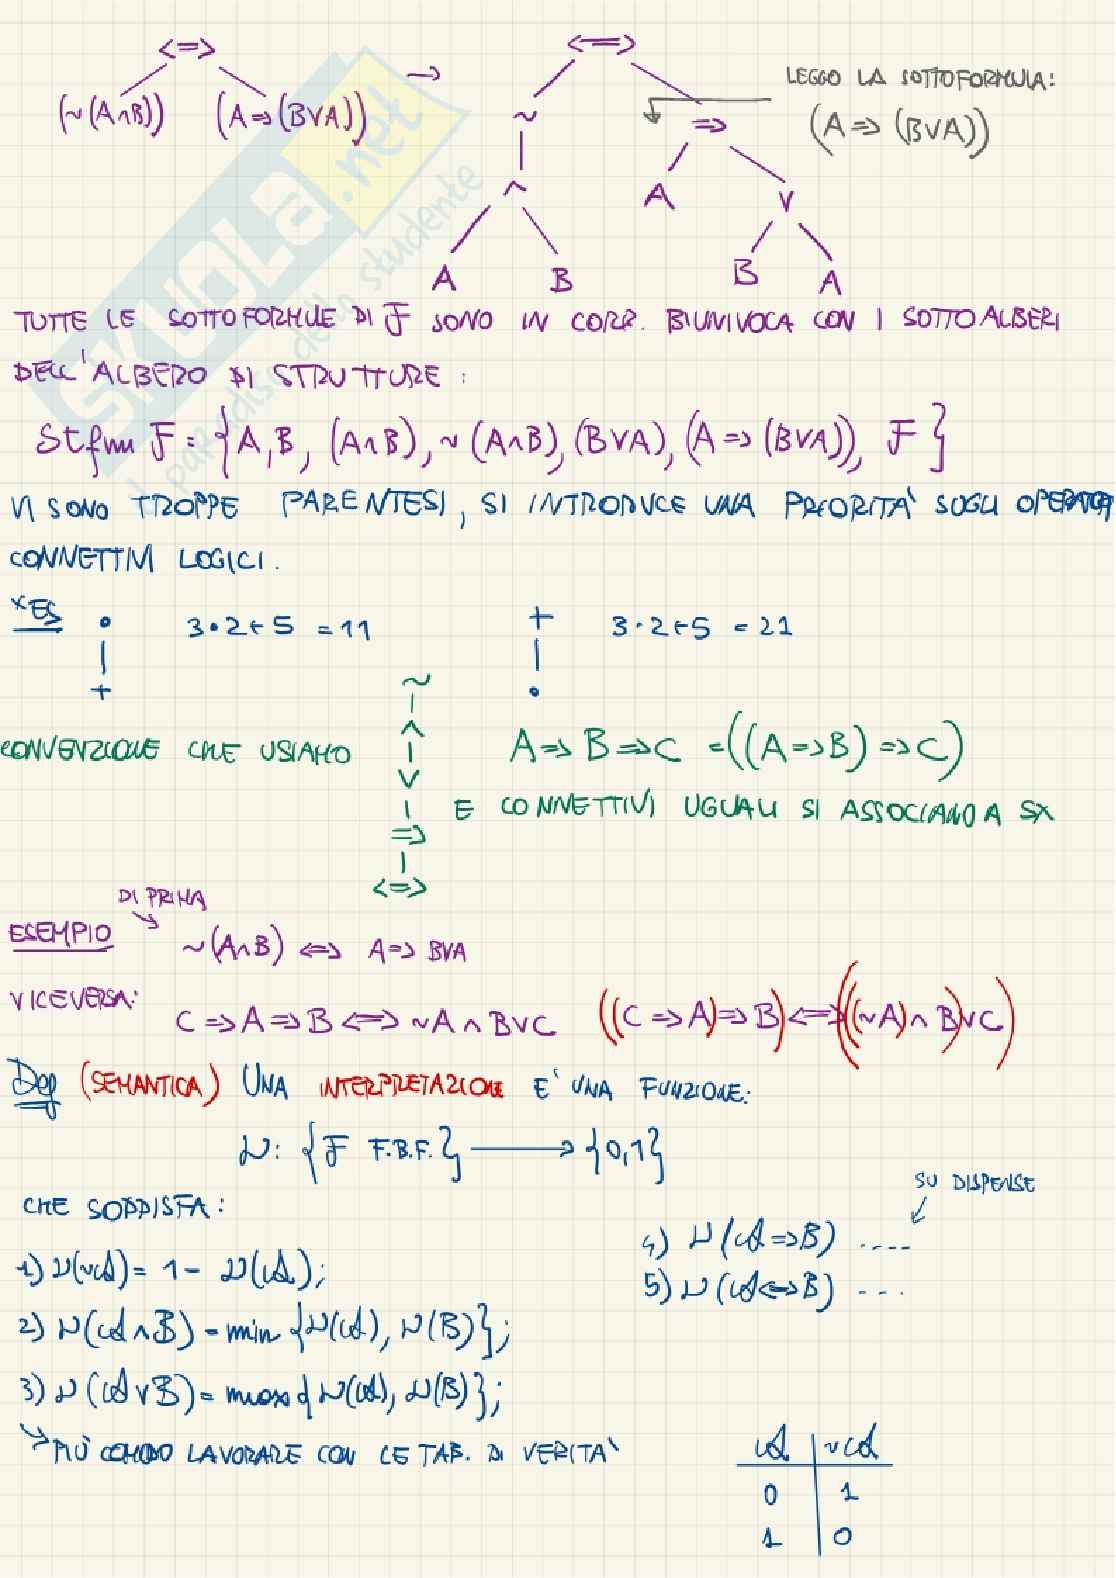 <=>
(~(A∧B)) (A=>(B∨A)) → <=> LEGGO LA SOTTOFORMULA:
~ => (A=> (B∨A))
∧ A ∨
A B B A
SKUOLA.net
il paradiso dello studente
TUTTE LE SOTTOFORMULE DI F SONO IN CORR. BIUNIVOCA CON I SOTTOALBERI
DELL'ALBERO DI STRUTTURE:
Stfm F = {A, B, (A∧B), ~(A∧B), (B∨A), (A=>(B∨A)), F}
VI SONO TROPPE PARENTESI, SI INTRODUCE UNA PRIORITA' SUGLI OPERATORI
CONNETTIVI LOGICI.
x ES • | + 3•2+5 = 11 + | • 3•2+5 = 21
~
|
∧
CONVENZIONE CHE USIAMO | A=>B=>C = ((A=>B)=>C)
∨
| E CONNETTIVI UGUALI SI ASSOCIANO A SX
=>
|
<=>
DI PRIMA
ESEMPIO ~(A∧B) <=> A=> B∨A
VICEVERSA: C=>A=>B <=> ~A∧B∨C ((C=>A)=>B) <=> (((~A)∧B)∨C)
Def (SEMANTICA) UNA INTERPRETAZIONE E' UNA FUNZIONE:
ν: {F F.B.F.} → {0,1}
CHE SODDISFA: SU DISPENSE
4) ν(A=>B) ....
1) ν(~A) = 1 - ν(A);
5) ν(A<=>B) ...
2) ν(A∧B) = min {ν(A), ν(B)};
3) ν(A∨B) = max {ν(A), ν(B)};
→ PIÙ COMODO LAVORARE CON LE TAB. DI VERITA'
A | ~A
0 | 1
1 | 0